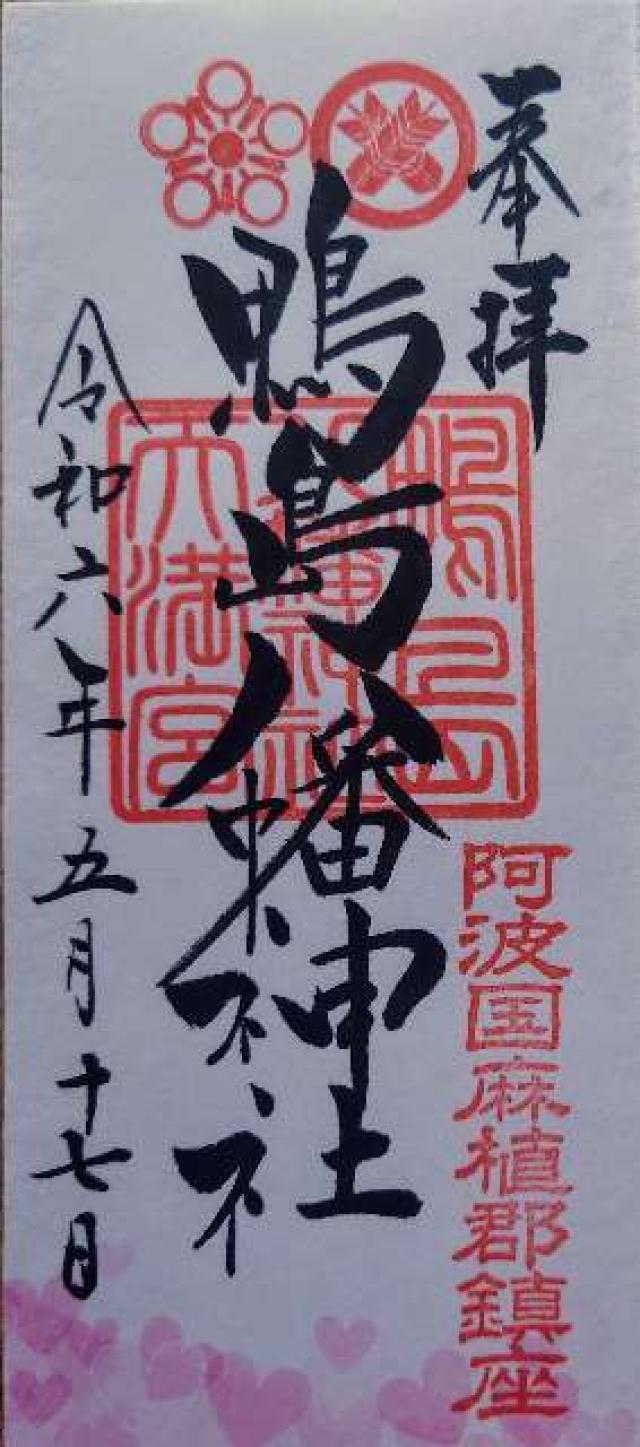 奉拝
阿波国麻植郡鎮座
鴨島八幡神社
鴨島
八幡神社
天満宮
令和六年五月十七日